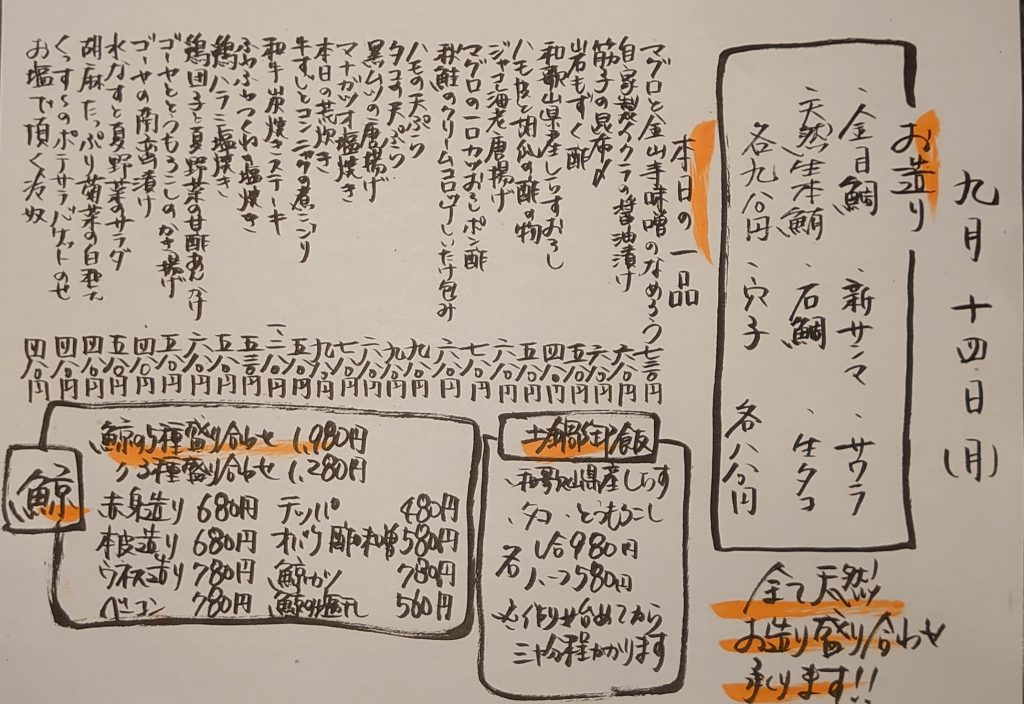 九月十四日(月)
お造り
・金目鯛 ・新サンマ ・サワラ
・天然生本鮪 ・石鯛 ・生タコ
各九八〇円 ・穴子 各八八〇円
全て天然!
お造り盛り合わせ
承ります!!
本日の一品
マグロと金山寺味噌のなめろう 七三〇円
自家製イクラの醤油漬け 六八〇円
筋子の昆布〆 六八〇円
岩もずく酢 五八〇円
和歌山県産しらすおろし 四八〇円
ハモ皮と胡瓜の酢の物 五八〇円
ジャコ海老唐揚げ 六八〇円
マグロの一口カツおろしポン酢 七八〇円
秋鮭のクリームコロッケしいたけ包み 六八〇円
ハモの天ぷら 九八〇円
タコの天ぷら 九八〇円
黒ムツの唐揚げ 六八〇円
マナガツオ塩焼き 七八〇円
本日の煮炊き 九八〇円
牛すじとコンニャクの煮こごり 五八〇円
和牛炭焼きステーキ 一、二八〇円
ふわふわつくね塩焼き 五三〇円
鶏ハラミ塩焼き 五八〇円
鶏団子と夏野菜の甘酢あんかけ 六八〇円
ゴーヤととうもろこしのかき揚げ 五八〇円
ゴーヤの南蛮漬け 四八〇円
水なすと夏野菜のサラダ 五八〇円
胡麻たっぷり菊菜の白和え 四八〇円
くっすんのポテサラバゲットのせ 四八〇円
お塩で頂く冷奴 四八〇円
土鍋御飯
・和歌山県産しらす
・タコ ・とうもろこし
各 1合980円
ハーフ580円
☆作り始めてから
三十分程かかります
鯨
鯨の5種盛り合わせ 1,980円
〃 3種盛り合わせ 1,280円
赤身造り 680円 テッパ 480円
本皮造り 680円 オバケ酢味噌 580円
ウネス造り 780円 鯨カツ 780円
ベーコン 780円 鯨の塩干し 560円